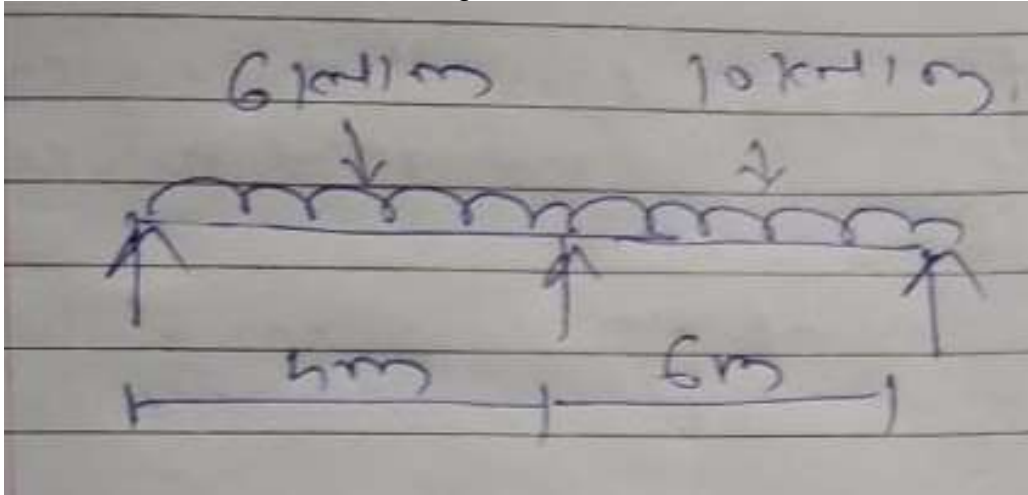 6 kN/m 10 kN/m.
4m 6m